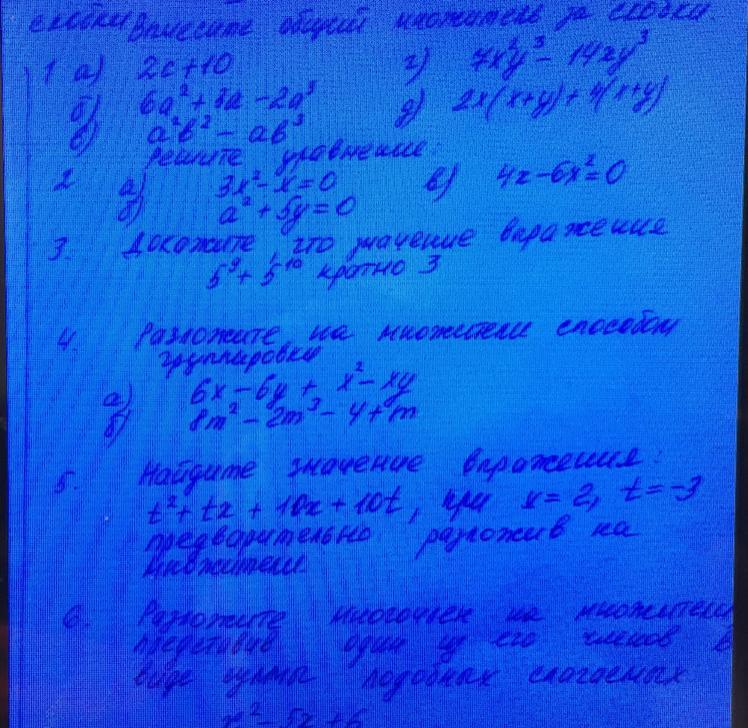 скобки Внесите общий множитель за скобки.
1 а) 2c+10 г) 7x²y³ - 14xy³
б) 6a²+3a-2a³ д) 2x(x+y)+4(x+y)
в) a²b² - ab³
Решите уравнение:
2 а) 3x²-x=0 в) 4x-6x²=0
б) a²+5y=0
3. Докажите, что значение выражения
5⁹+5¹⁰ кратно 3
4. Разложите на множители способом
группировки
а) 6x-6y + x²-xy
б) 8m²-2m³-4+m
5. Найдите значение выражения:
t²+tx+10x+10t, при x=2, t=-3
предварительно разложив на
множители.
6. Разложите многочлен на множители
представив один из его членов в
виде суммы подобных слагаемых
x²-5x+6